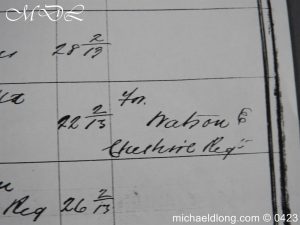 MDL
28 2/13
22 2/13
Watson
Cheshire Reg
Reg 26 2/13
michaeldlong.com © 0423